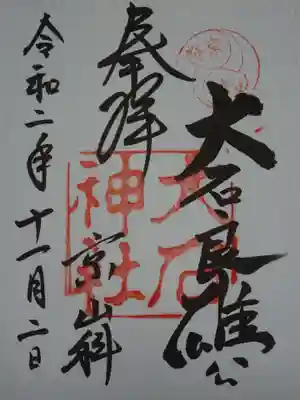 大石良雄公
奉拝
大石神社
京山科
令和二年十一月二日